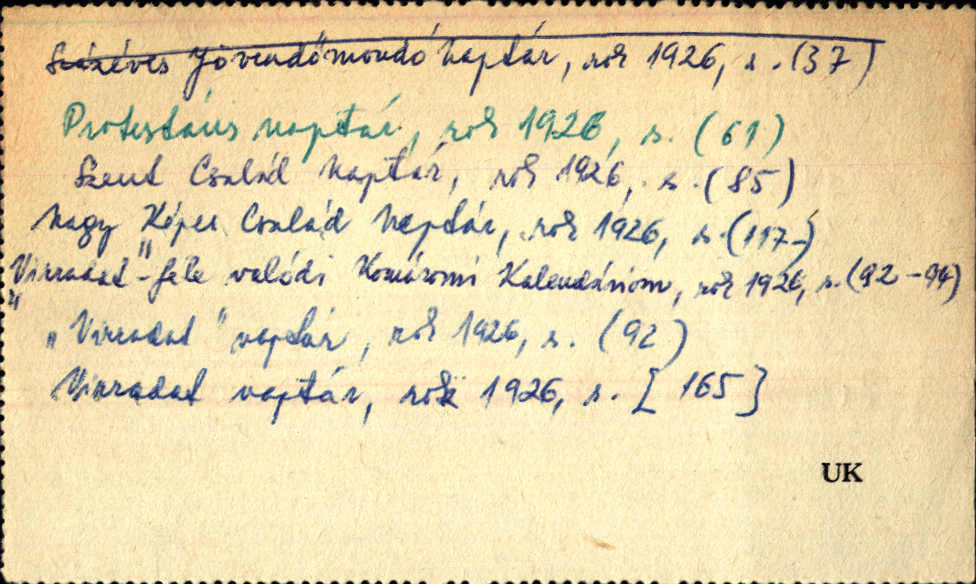 Százéves Jövendőmondó naptár, rok 1926, s. (37)
Protestáns naptár, rok 1926, s. (61)
Szent Család Naptár, rok 1926, s. (85)
Nagy Képes Család Naptár, rok 1926, s. (117-)
"Virradat"-féle valódi Komáromi Kalendáriom, rok 1926, s. (92-94)
"Virradat" naptár, rok 1926, s. (92)
Virradat naptár, rok 1926, s. [165]
UK